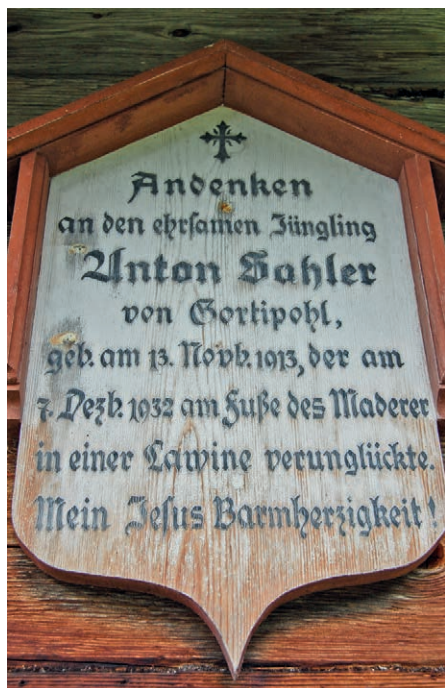 Andenken
an den ehrsamen Jüngling
Anton Sahler
von Gortipohl,
geb. am 13. Novb. 1913, der am
7. Dezb. 1932 am Fuße des Maderer
in einer Lawine verunglückte.
Mein Jesus Barmherzigkeit!